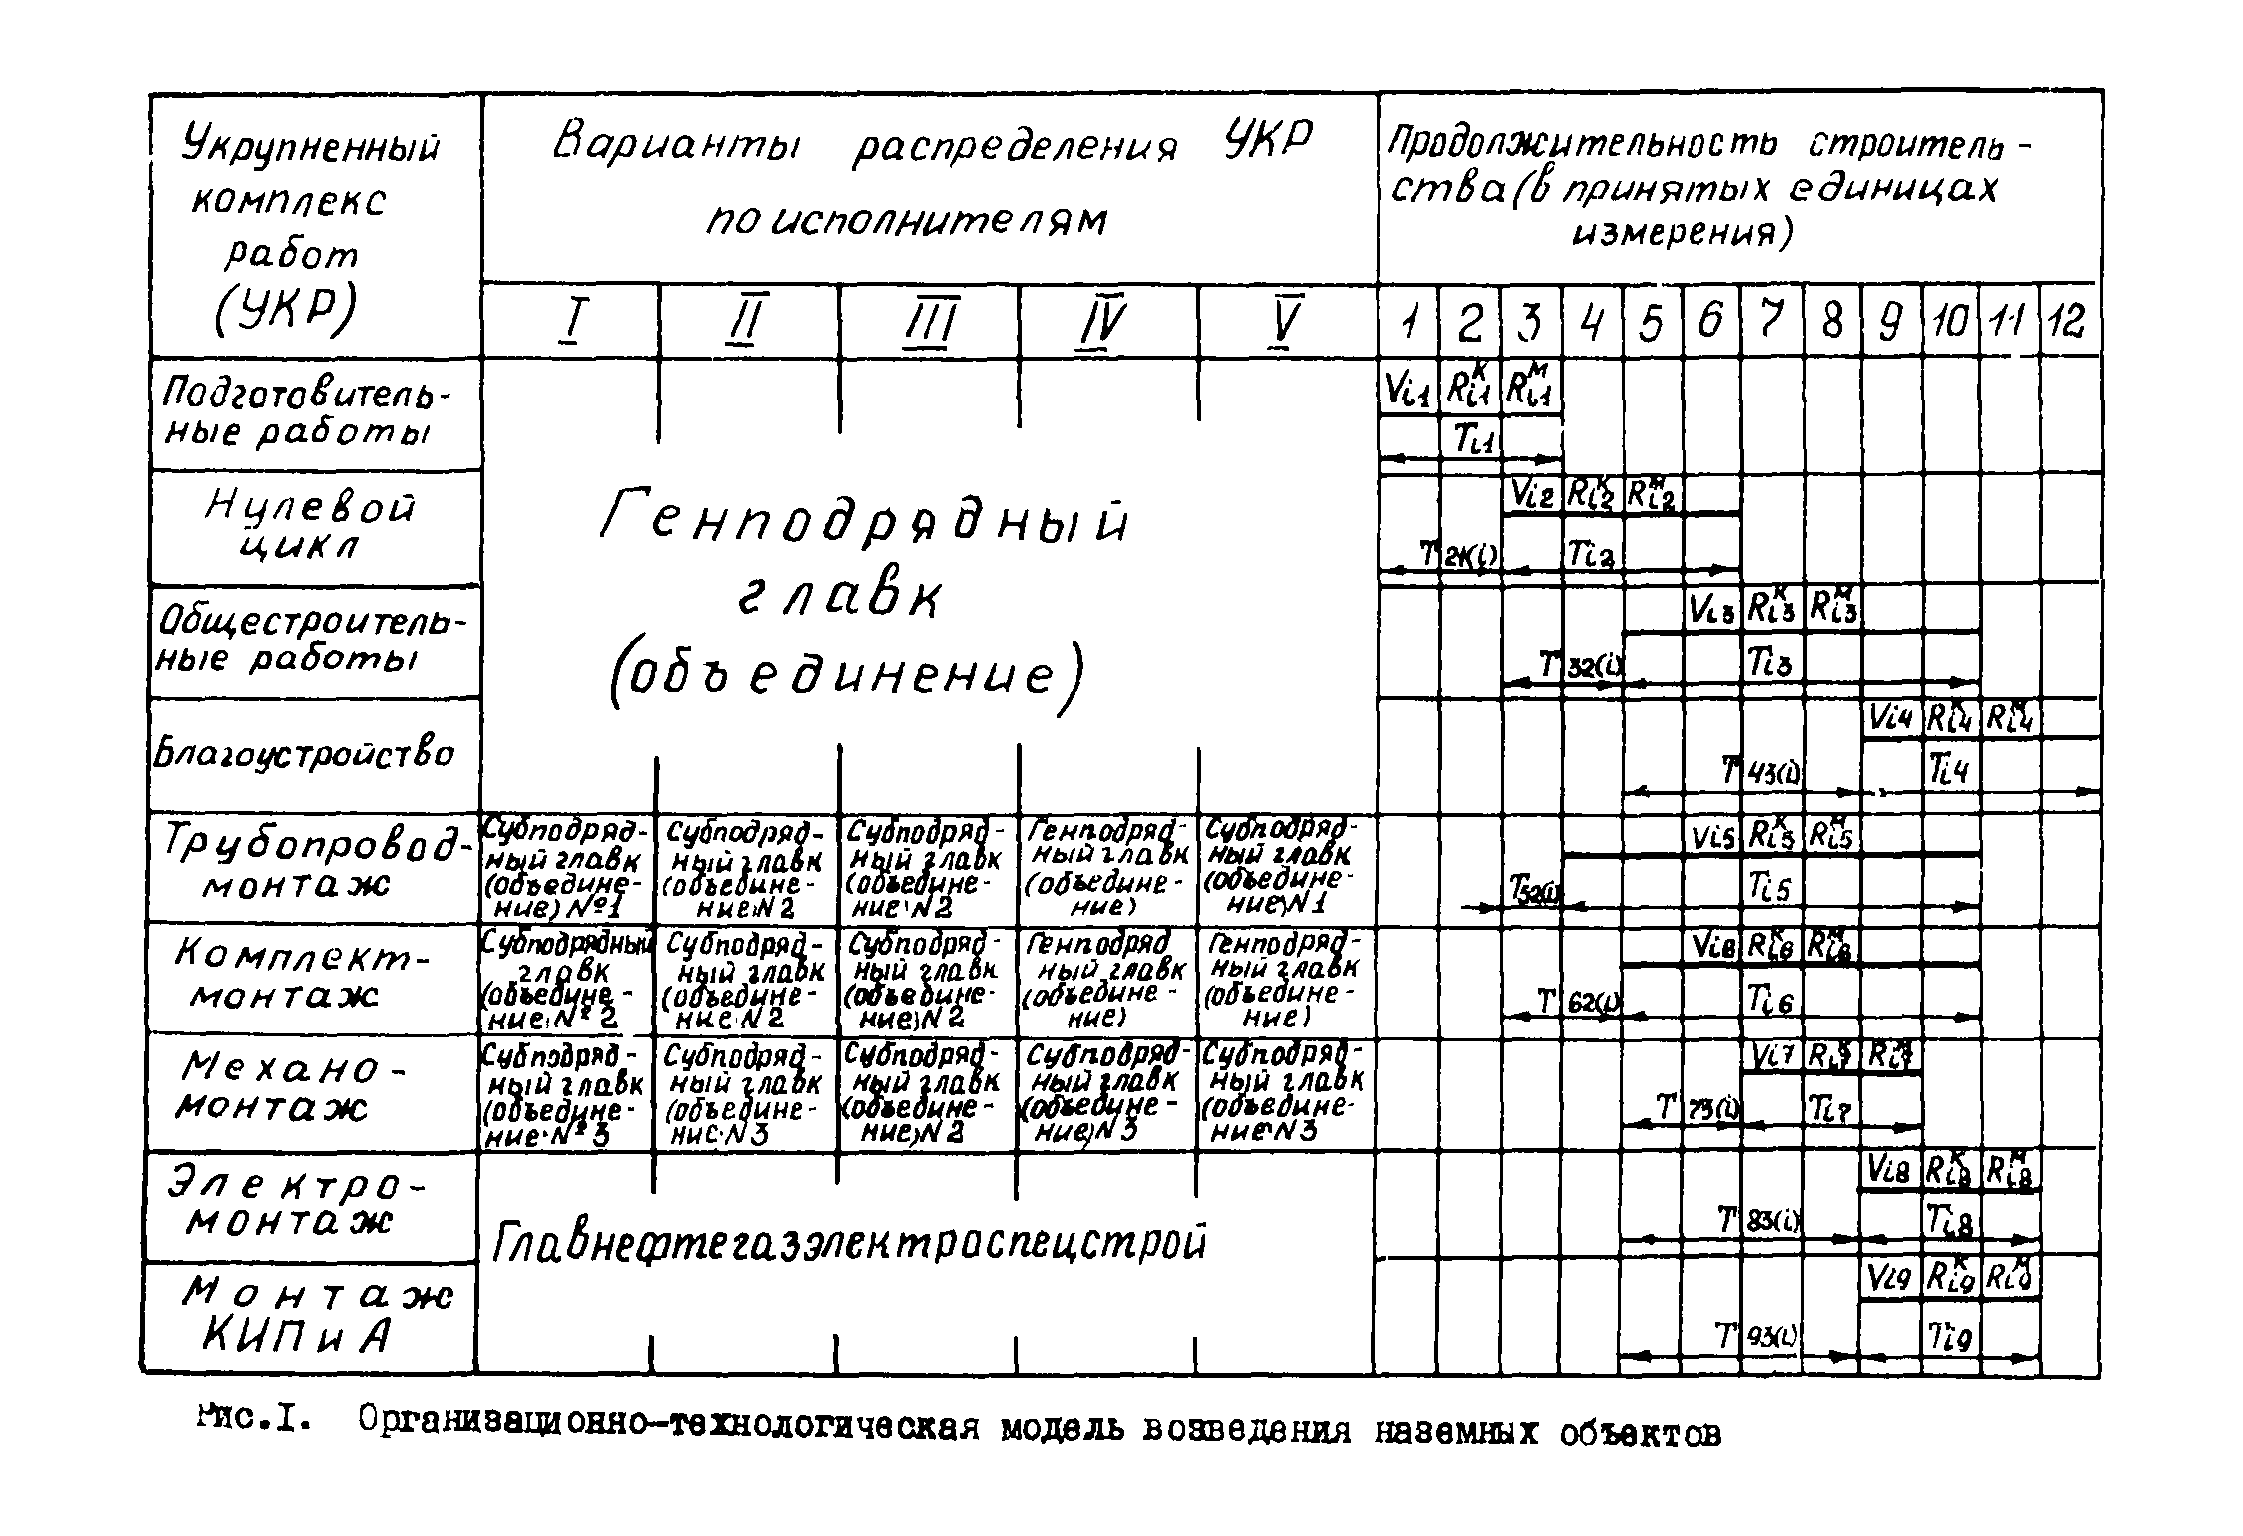 Укрупненный
комплекс
работ
(УКР)
Варианты распределения УКР
по исполнителям
Продолжительность строитель-
ства (в принятых единицах
измерения)
I II III IV V
1 2 3 4 5 6 7 8 9 10 11 12
Подготовитель-
ные работы
Vi1 Rкi1 Rмi1
Ti1
Нулевой
цикл
Vi2 Rкi2 Rмi2
T Ti2
Генподрядный
главк
(объединение)
Общестроитель-
ные работы
Vi3 Rкi3 Rмi3
T 32(i) Ti3
Благоустройство
Vi4 Rкi4 Rмi4
T 43(i) Ti4
Трубопровод-
монтаж
Субподряд-
ный главк
(объедине-
ние) №1
Субподряд-
ный главк
(объедине-
ние) N2
Субподряд-
ный главк
(объедине-
ние) N2
Генподряд-
ный главк
(объедине-
ние)
Субподряд-
ный главк
(объедине-
ние) N1
Vi5 Rкi5 Rмi5
T52(i) Ti5
Комплект-
монтаж
Субподрядный
главк
(объедине-
ние) №2
Субподряд-
ный главк
(объедине-
ние) N2
Субподряд-
ный главк
(объедине-
ние) N2
Генподряд
ный главк
(объедине-
ние)
Генподряд-
ный главк
(объедине-
ние)
Vi6 Rкi6 Rмi6
T 62(i) Ti6
Механо-
монтаж
Субподряд-
ный главк
(объедине-
ние) №3
Субподряд-
ный главк
(объедине-
ние) N3
Субподряд-
ный главк
(объедине-
ние) N2
Субподряд-
ный главк
(объедине-
ние) N3
Субподряд-
ный главк
(объедине-
ние) N3
Vi7 Rкi7 Rмi7
T 73(i) Ti7
Электро-
монтаж
Vi8 Rкi8 Rмi8
T 83(i) Ti8
Главнефтегазэлектроспецстрой
Монтаж
КИП и А
Vi9 Rкi9 Rмi9
T 93(i) Ti9
Рис.I. Организационно-технологическая модель возведения наземных объектов